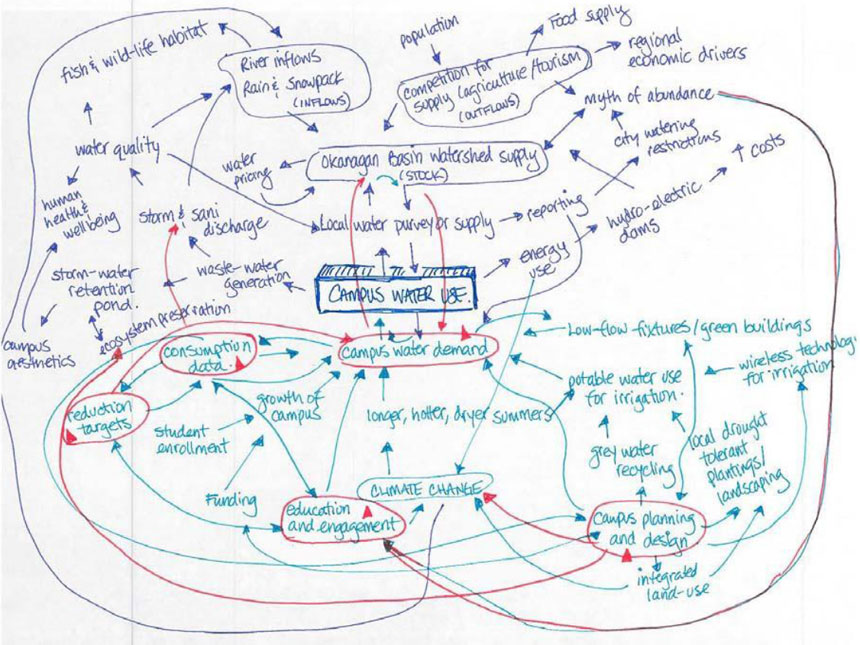 population
Food supply
fish & wild-life habitat
River inflows
Rain & Snowpack
(INFLOWS)
competition for
supply (agriculture/tourism)
(OUTFLOWS)
regional
economic drivers
myth of abundance
city watering
restrictions
↑ costs
water quality
water
pricing
Okanagan Basin Watershed supply
(STOCK)
human
health &
wellbeing
storm & sani
discharge
Local water purveyor supply
reporting
hydro-electric
dams
energy
use
storm-water
retention
pond.
waste-water
generation
CAMPUS WATER USE.
ecosystem preservation
campus
aesthetics
consumption
data.
campus water demand
Low-flow-fixtures/green buildings
wireless technology
for irrigation
potable water use
for irrigation.
reduction
targets
growth of
campus
longer, hotter, dryer summers
student
enrollment
grey water
recycling
local drought
tolerant
plantings/
landscaping
Funding
CLIMATE CHANGE
education
and engagement
Campus planning
and design
integrated
land-use